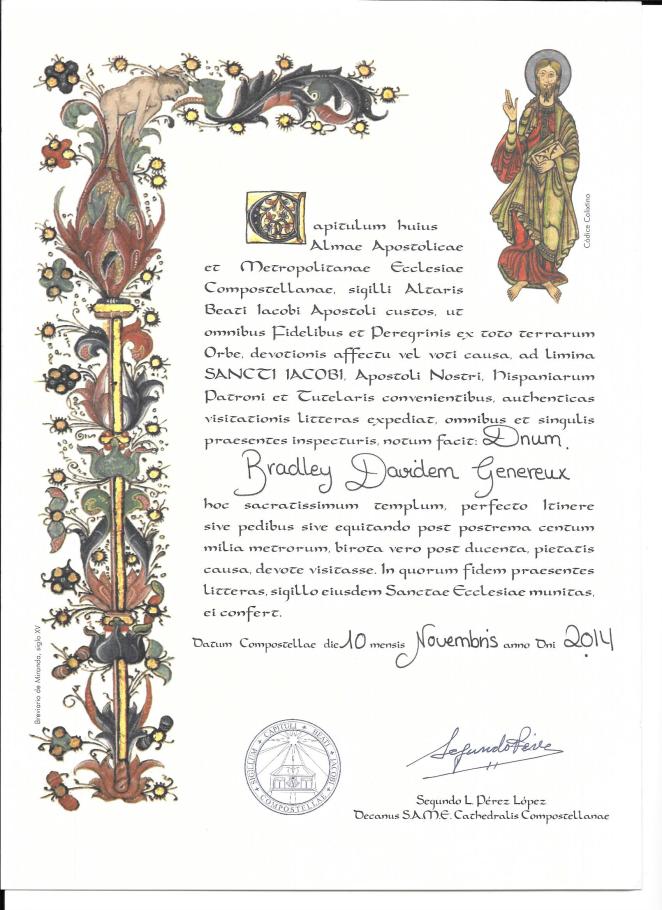 Capitulum huius
Almae Apostolicae
et Metropolitanae Ecclesiae
Compostellanae, sigilli Altaris
Beati Iacobi Apostoli custos, ut
omnibus Fidelibus et Peregrinis ex toto terrarum
Orbe, devotionis affectu vel voti causa, ad limina
SANCTI IACOBI, Apostoli Nostri, Hispaniarum
Patroni et Tutelaris convenientibus, authenticas
visitationis litteras expediat, omnibus et singulis
praesentes inspecturis, notum facit: Dnum.
Bradley Davidem Genereux
hoc sacratissimum templum, perfecto Itinere
sive pedibus sive equitando post postrema centum
milia metrorum, birota vero post ducenta, pietatis
causa, devote visitasse. In quorum fidem praesentes
litteras, sigillo eiusdem Sanctae Ecclesiae munitas,
ei confert.
Datum Compostellae die 10 mensis Novembris anno Dni 2014
Códice Calixtino
Breviario de Miranda, siglo XV
SIGILLUM CAPITULI BEATI IACOBI COMPOSTELLAE
Segundo Pérez
Segundo L. Pérez López
Decanus S.A.M.E. Cathedralis Compostellanae